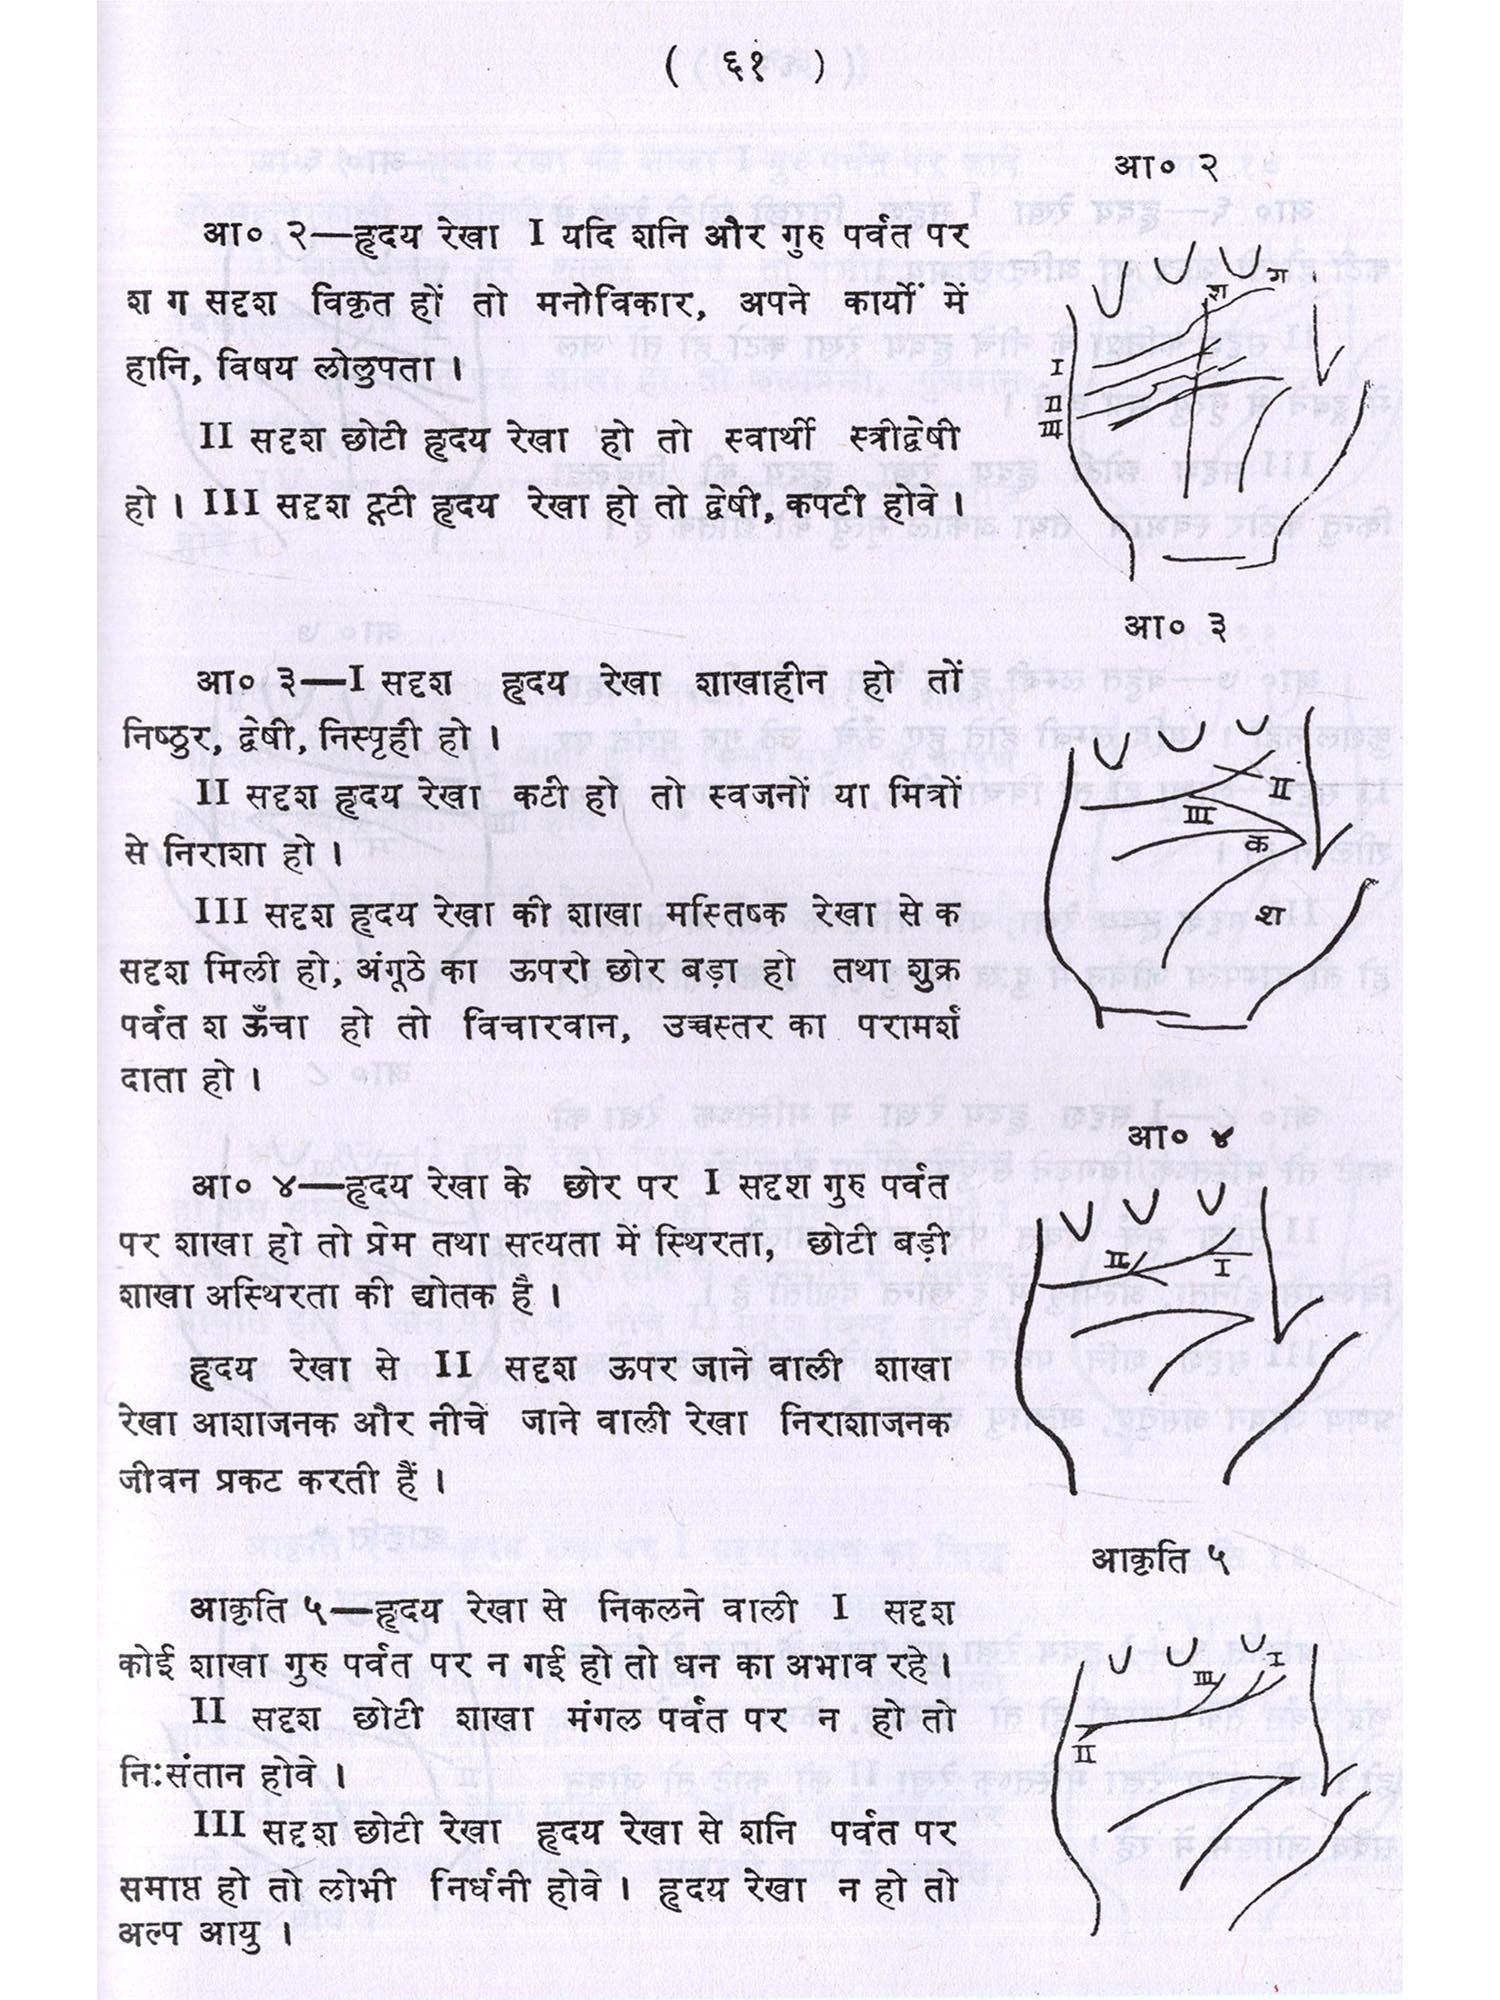 ( ६१ )
आ० २
आ० २—हृदय रेखा I यदि शनि और गुरु पर्वत पर
श ग सदृश विकृत हों तो मनोविकार, अपने कार्यों में
हानि, विषय लोलुपता ।
II सदृश छोटी हृदय रेखा हो तो स्वार्थी स्त्रीद्वेषी
हो । III सदृश टूटी हृदय रेखा हो तो द्वेषी, कपटी होवे ।
श ग
I
II
III
आ० ३
आ० ३—I सदृश हृदय रेखा शाखाहीन हो तों
निष्ठुर, द्वेषी, निस्पृही हो ।
II सदृश हृदय रेखा कटी हो तो स्वजनों या मित्रों
से निराशा हो ।
III सदृश हृदय रेखा की शाखा मस्तिष्क रेखा से क
सदृश मिली हो, अंगूठे का ऊपरो छोर बड़ा हो तथा शुक्र
पर्वत श ऊँचा हो तो विचारवान, उच्चस्तर का परामर्श
दाता हो ।
II
III
क
श
आ० ४
आ० ४—हृदय रेखा के छोर पर I सदृश गुरु पर्वत
पर शाखा हो तो प्रेम तथा सत्यता में स्थिरता, छोटी बड़ी
शाखा अस्थिरता की द्योतक है ।
हृदय रेखा से II सदृश ऊपर जाने वाली शाखा
रेखा आशाजनक और नीचे जाने वाली रेखा निराशाजनक
जीवन प्रकट करती हैं ।
II
I
आकृति ५
आकृति ५—हृदय रेखा से निकलने वाली I सदृश
कोई शाखा गुरु पर्वत पर न गई हो तो धन का अभाव रहे ।
II सदृश छोटी शाखा मंगल पर्वत पर न हो तो
निःसंतान होवे ।
III सदृश छोटी रेखा हृदय रेखा से शनि पर्वत पर
समाप्त हो तो लोभी निर्धनी होवे । हृदय रेखा न हो तो
अल्प आयु ।
III I
II